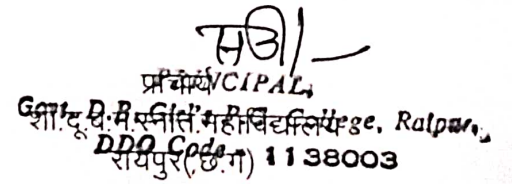 सही/-
प्राचार्य
PRINCIPAL,
Govt. D.B. Girl's P.G. College, Raipur,
शा.दू.ब.म.स्नात.महाविद्यालय
DDO Code - 1138003
रायपुर (छ.ग)